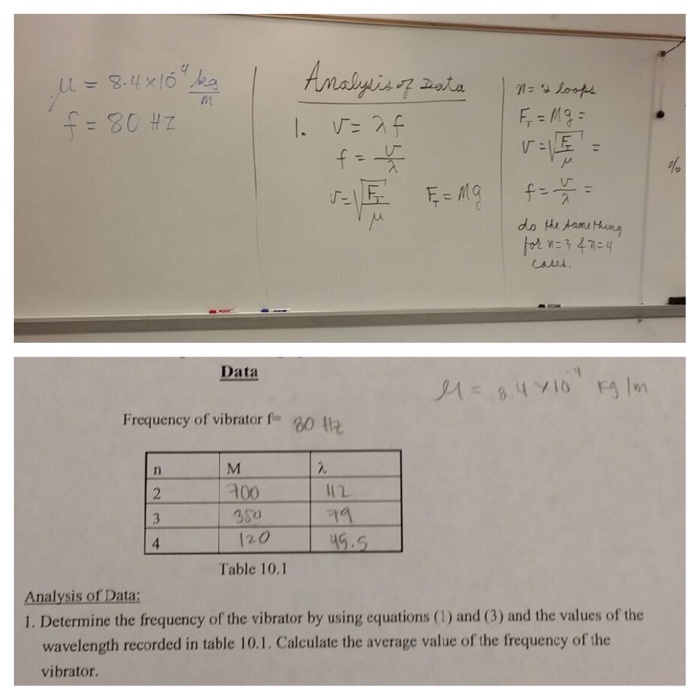 μ = 8.4×10⁻⁴ kg/m
f = 80 HZ
Analysis of Data
1. v = λf
f = v/λ
v = √(F_T/μ) F_T = Mg
n = 2 loops
F_T = Mg =
v = √(F_T/μ) =
f = v/λ =
do the same thing
for n=3 & n=4
cases.
%
Data
μ = 8.4×10⁻⁴ kg/m
Frequency of vibrator f= 80 Hz
n M λ
2 700 112
3 350 79
4 120 45.5
Table 10.1
Analysis of Data:
1. Determine the frequency of the vibrator by using equations (1) and (3) and the values of the
wavelength recorded in table 10.1. Calculate the average value of the frequency of the
vibrator.